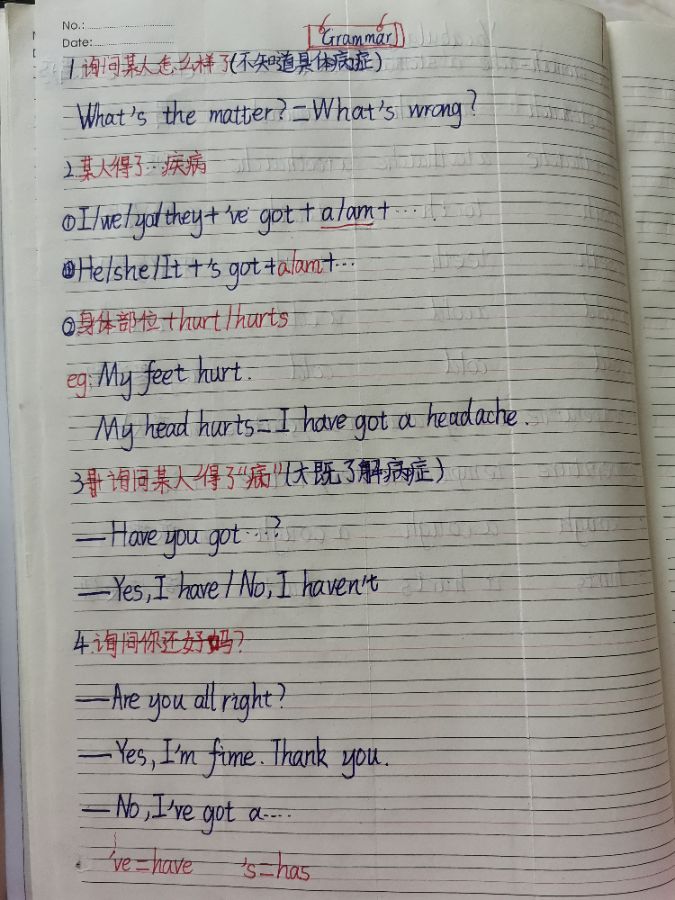 No.:
Date:
Grammar
1.询问某人怎么样了(不知道具体病症)
What's the matter?=What's wrong?
2.某人得了…疾病
①I/we/you/they+'ve got+a/am+…
He/she/It+'s got+a/am+…
②身体部位+hurt/hurts
eg:My feet hurt.
My head hurts=I have got a headache.
3.询问某人得了"病"(大既了解病症)
—Have you got…?
—Yes,I have/No,I haven't
4.询问你还好吗?
—Are you all right?
—Yes,I'm fime.Thank you.
—No,I've got a....
've=have 's=has